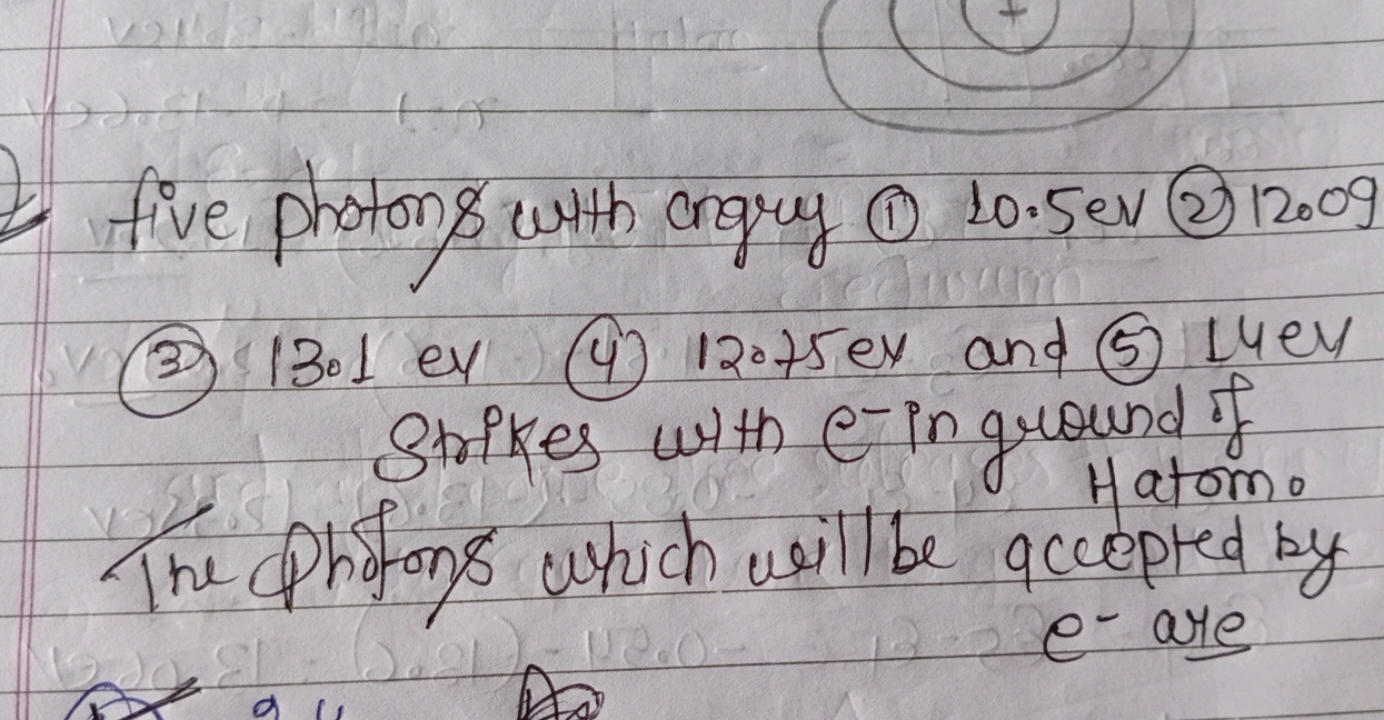 +
five photons with engry ① 10.5ev ② 12.09
③ 13.1 ev ④ 12.75ev and ⑤ 14ev
Strikes with e- in ground of
H atom.
The Photons which will be accepted by
e- are